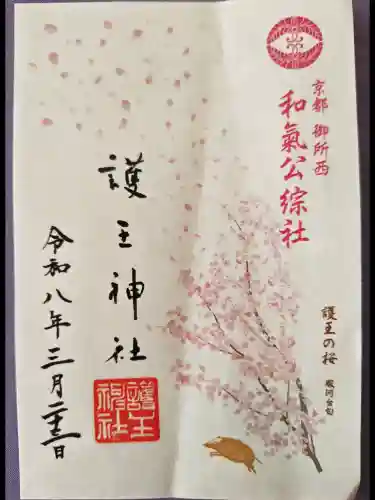 京都 御所西
和氣公綜社
護王の桜 駿河台匂
護王神社
令和八年三月二十三日
護王神社